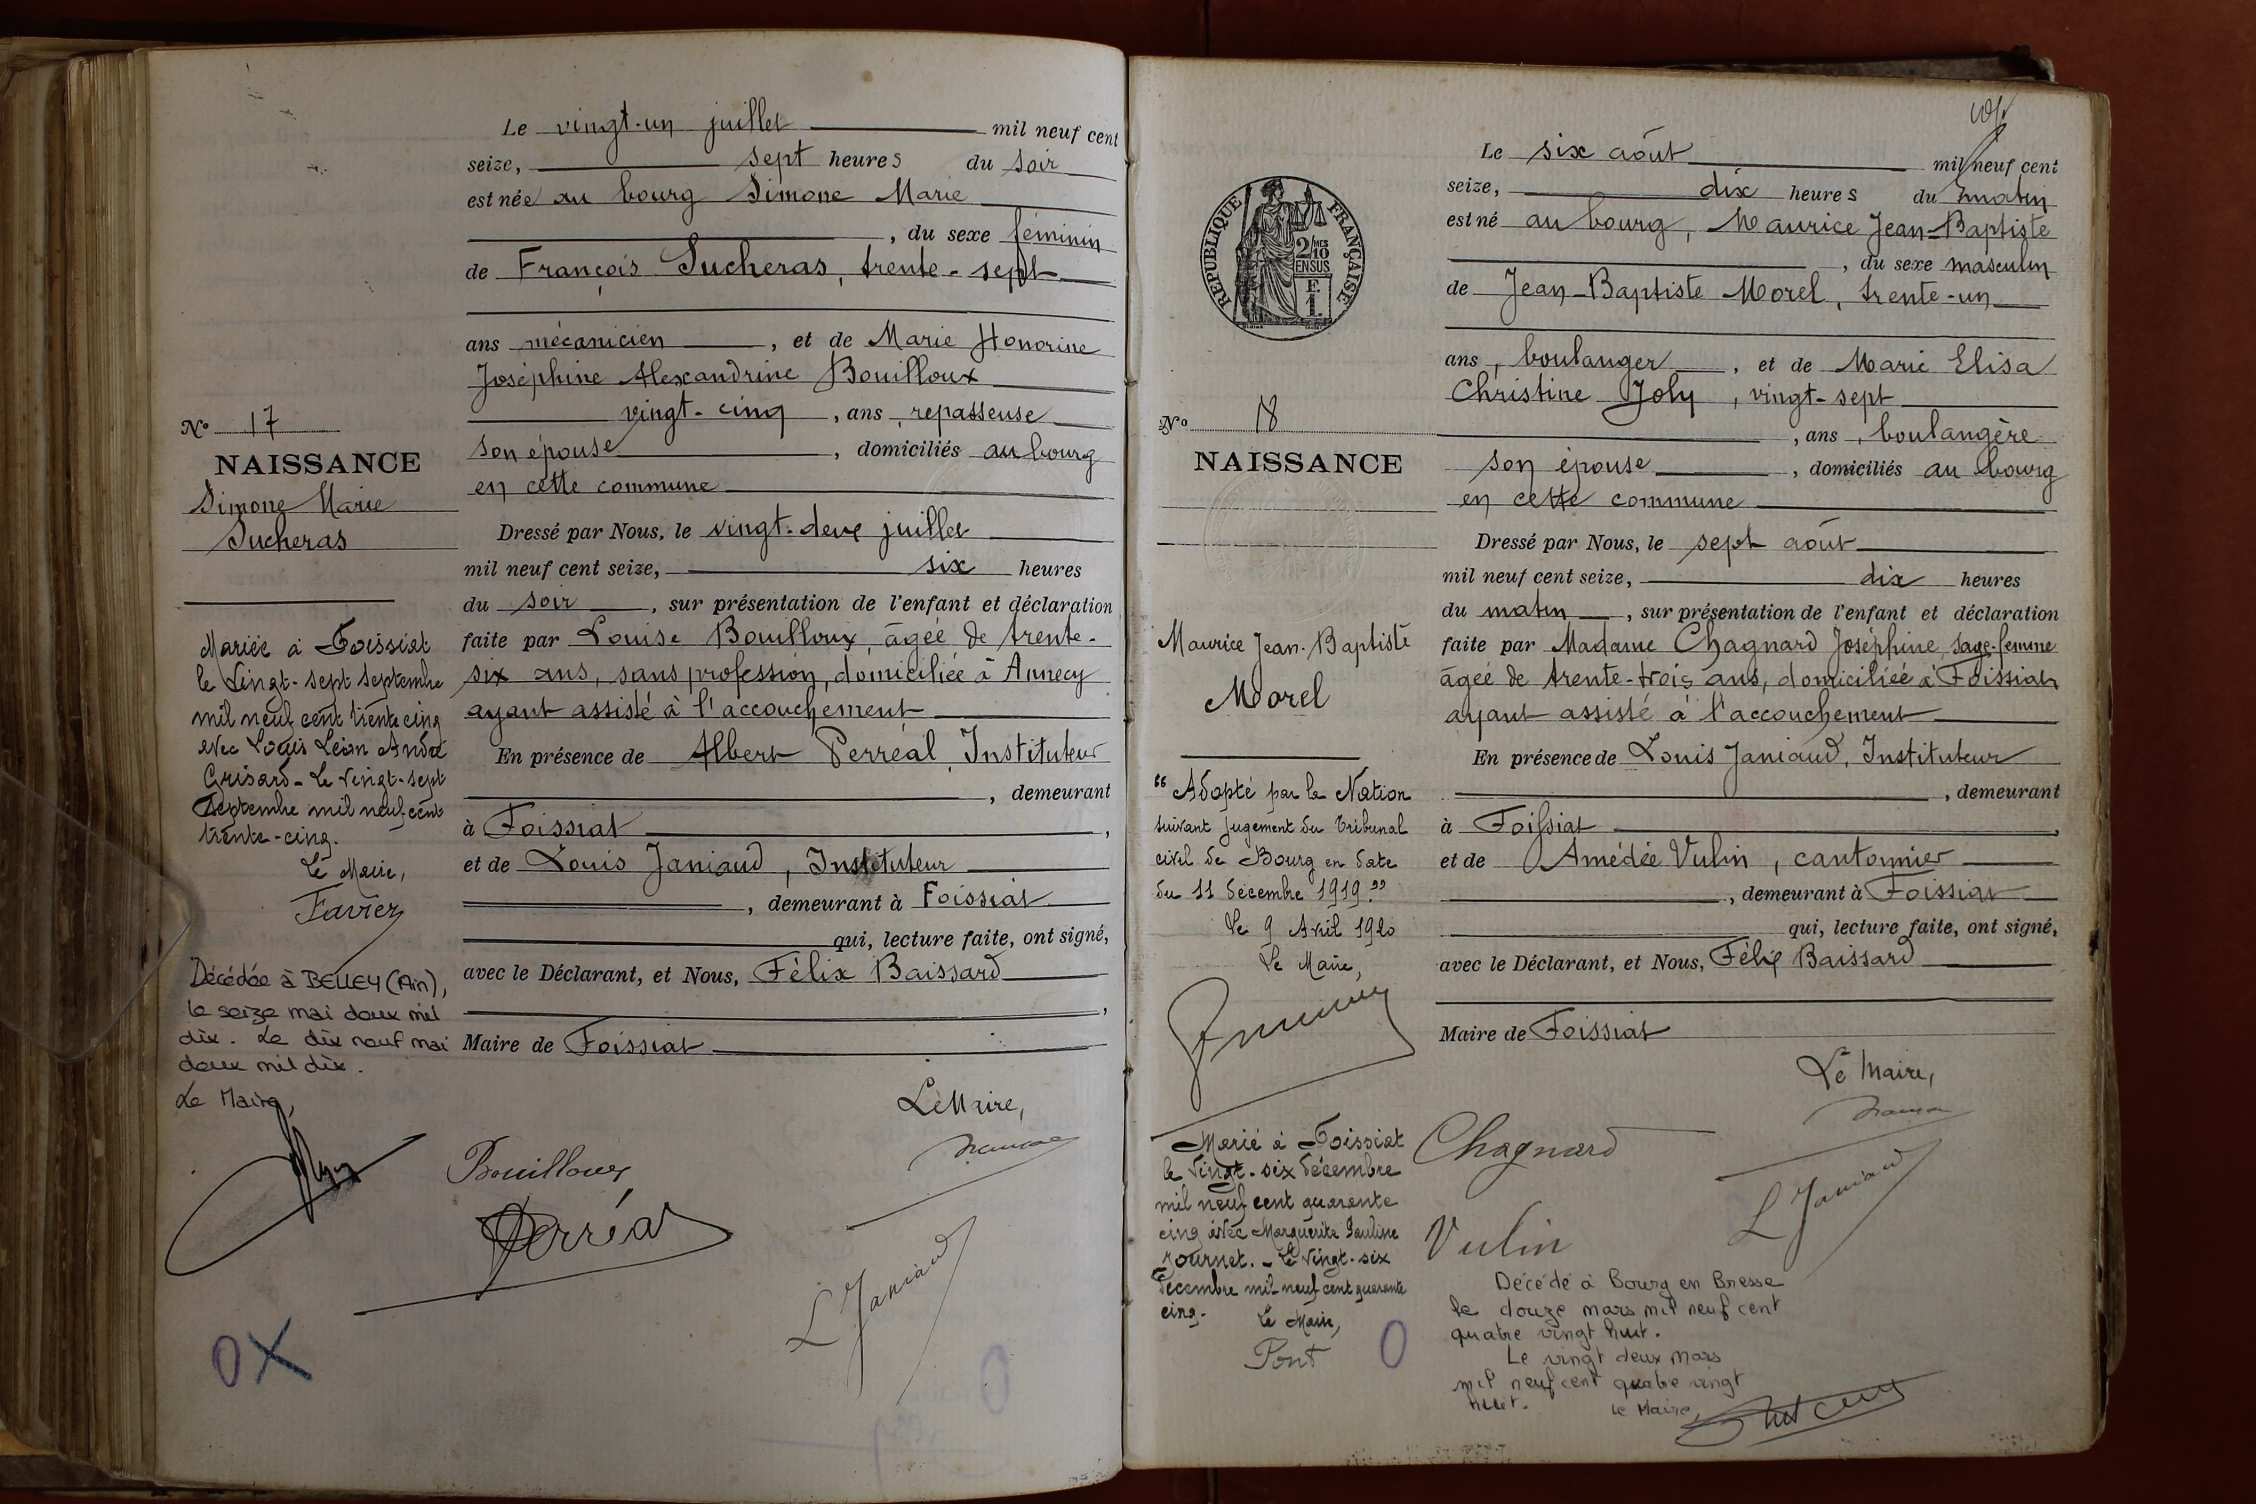 Le vingt-un juillet mil neuf cent
seize, sept heures du soir
est née au bourg Simone Marie
, du sexe féminin
de François Sucheras, trente-sept
ans mécanicien, et de Marie Honorine
Joséphine Alexandrine Bouilloux
vingt-cinq, ans, repasseuse
son épouse, domiciliés au bourg
en cette commune
Dressé par Nous, le vingt-deux juillet
mil neuf cent seize, six heures
du soir, sur présentation de l'enfant et déclaration
faite par Louise Bouilloux, âgée de trente-
six ans, sans profession, domiciliée à Annecy
ayant assisté à l'accouchement
En présence de Albert Perréal, Instituteur
, demeurant
à Foissiat,
et de Louis Janiaud, Instituteur
, demeurant à Foissiat
qui, lecture faite, ont signé,
avec le Déclarant, et Nous, Félix Baissard
,
Maire de Foissiat
Le Maire,
Bouilloux
Perréal
L Janiaud
No 17
NAISSANCE
Simone Marie
Sucheras
Mariée à Foissiat
le Vingt-sept septembre
mil neuf cent trente cinq
avec Louis Léon André
Grisard - Le vingt-sept
septembre mil neuf cent
trente-cinq.
Le Maire,
Favier
Décédée à BELLEY (Ain),
le seize mai deux mil
dix. Le dix neuf mai
deux mil dix.
Le Maire,
OX
Le six août mil neuf cent
seize, dix heures du matin
est né au bourg, Maurice Jean-Baptiste
, du sexe masculin
de Jean-Baptiste Morel, trente-un
ans, boulanger, et de Marie Elisa
Christine Joly, vingt-sept
, ans, boulangère
son épouse, domiciliés au bourg
en cette commune
Dressé par Nous, le sept août
mil neuf cent seize, dix heures
du matin, sur présentation de l'enfant et déclaration
faite par Madame Chagnard Joséphine, sage-femme
âgée de trente-trois ans, domiciliée à Foissiat
ayant assisté à l'accouchement
En présence de Louis Janiaud, Instituteur
, demeurant
à Foissiat,
et de Amédée Vulin, cantonnier
, demeurant à Foissiat
qui, lecture faite, ont signé,
avec le Déclarant, et Nous, Félix Baissard
Maire de Foissiat
Le Maire,
Chagnard
L Janiaud
Vulin
Décédé à Bourg en Bresse
le douze mars mil neuf cent
quatre vingt huit.
Le vingt deux mars
mil neuf cent quatre vingt
huit. Le Maire,
RÉPUBLIQUE FRANÇAISE
2/10MES
EN SUS
F.
1.
No 18
NAISSANCE
Maurice Jean-Baptiste
Morel
"Adopté par la Nation
suivant jugement du Tribunal
civil de Bourg en date
du 11 décembre 1919."
Le 9 Avril 1920
Le Maire,
Marié à Foissiat
le vingt-six décembre
mil neuf cent quarante
cinq avec Marguerite Pauline
Journet. - Le Vingt-six
décembre mil neuf cent quarante
cinq.
Le Maire,
Pont
O